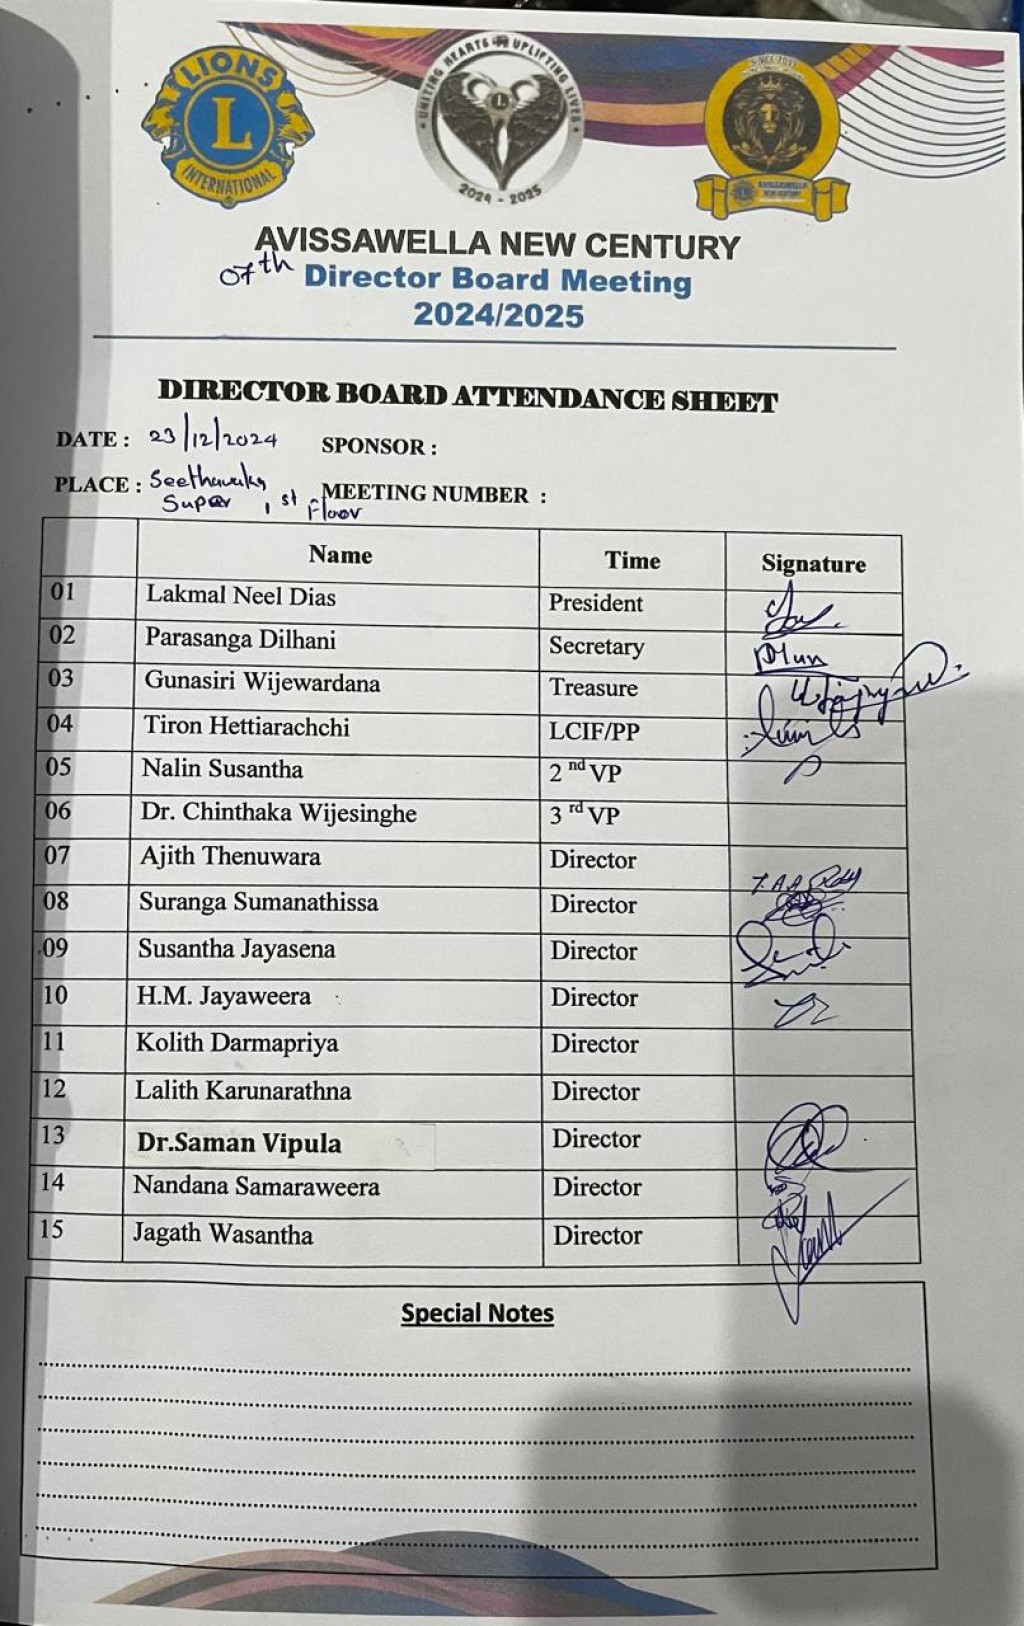 LIONS
L
INTERNATIONAL
UNITING HEARTS UPLIFTING LIVES
2024 - 2025
SINCE
AVISSAWELLA
NEW CENTURY
AVISSAWELLA NEW CENTURY
07th Director Board Meeting
2024/2025
DIRECTOR BOARD ATTENDANCE SHEET
DATE : 23/12/2024 SPONSOR :
PLACE : Seethawaka Super 1st Floor MEETING NUMBER :
Name Time Signature
01 Lakmal Neel Dias President
02 Parasanga Dilhani Secretary
03 Gunasiri Wijewardana Treasure
04 Tiron Hettiarachchi LCIF/PP
05 Nalin Susantha 2 nd VP
06 Dr. Chinthaka Wijesinghe 3 rd VP
07 Ajith Thenuwara Director
08 Suranga Sumanathissa Director
09 Susantha Jayasena Director
10 H.M. Jayaweera Director
11 Kolith Darmapriya Director
12 Lalith Karunarathna Director
13 Dr.Saman Vipula Director
14 Nandana Samaraweera Director
15 Jagath Wasantha Director
Special Notes